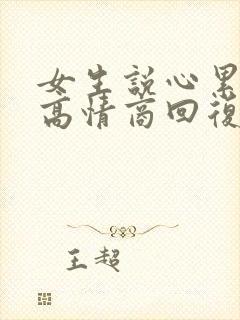 女生説心累
高情商回復
王超